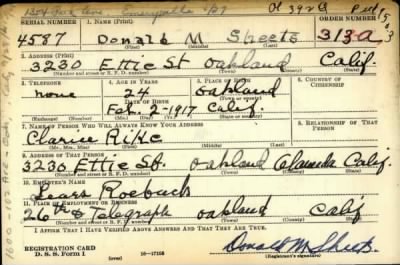 SERIAL NUMBER 1. NAME (Print) ORDER NUMBER
4587 Donald M Sheets 313-A
(First) (Middle) (Last)
2. ADDRESS (Print)
3230 Ettie St Oakland Calif.
(Number and street or R. F. D. number) (Town) (County) (State)
3. TELEPHONE 4. AGE IN YEARS 5. PLACE OF BIRTH 6. COUNTRY OF CITIZENSHIP
none 24 Oakland
DATE OF BIRTH
2 - 1917 Calif.
7. NAME OF PERSON WHO WILL ALWAYS KNOW YOUR ADDRESS 8. RELATIONSHIP OF THAT PERSON
(Mr., Mrs., Miss) (First) (Middle) (Last)
9. ADDRESS OF THAT PERSON
3230 Ettie St. Oakland Alameda Calif.
(Number and street or R. F. D. number) (Town) (County) (State)
10. EMPLOYER'S NAME
Sears Roebuck
11. PLACE OF EMPLOYMENT OR BUSINESS
26th & Telegraph Oakland Calif
(Number and street or R. F. D. number) (Town) (County) (State)
I AFFIRM THAT I HAVE VERIFIED ABOVE ANSWERS AND THAT THEY ARE TRUE.
REGISTRATION CARD
D. S. S. Form 1 16-17105 Donald M Sheets
(Registrant's signature)